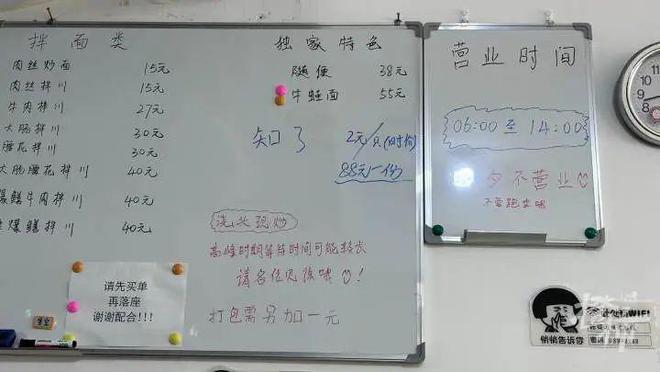 拌面类
肉丝炒面 15元
肉丝拌川 15元
牛肉拌川 27元
大肠拌川 30元
腰花拌川 30元
大肠腰花拌川 40元
爆鳝牛肉拌川 40元
爆鳝拌川 40元
请先买单
再落座
谢谢配合!!!
独家特色
随便 38元
牛蛙面 55元
知了 2元/只(时价)
88元一份
浇头现炒
高峰时期等待时间可能较长
请各位见谅哦!
打包需另加一元
营业时间
06:00 至 14:00
夕不营业
不要跑空哦
悄悄告诉你
WIFI